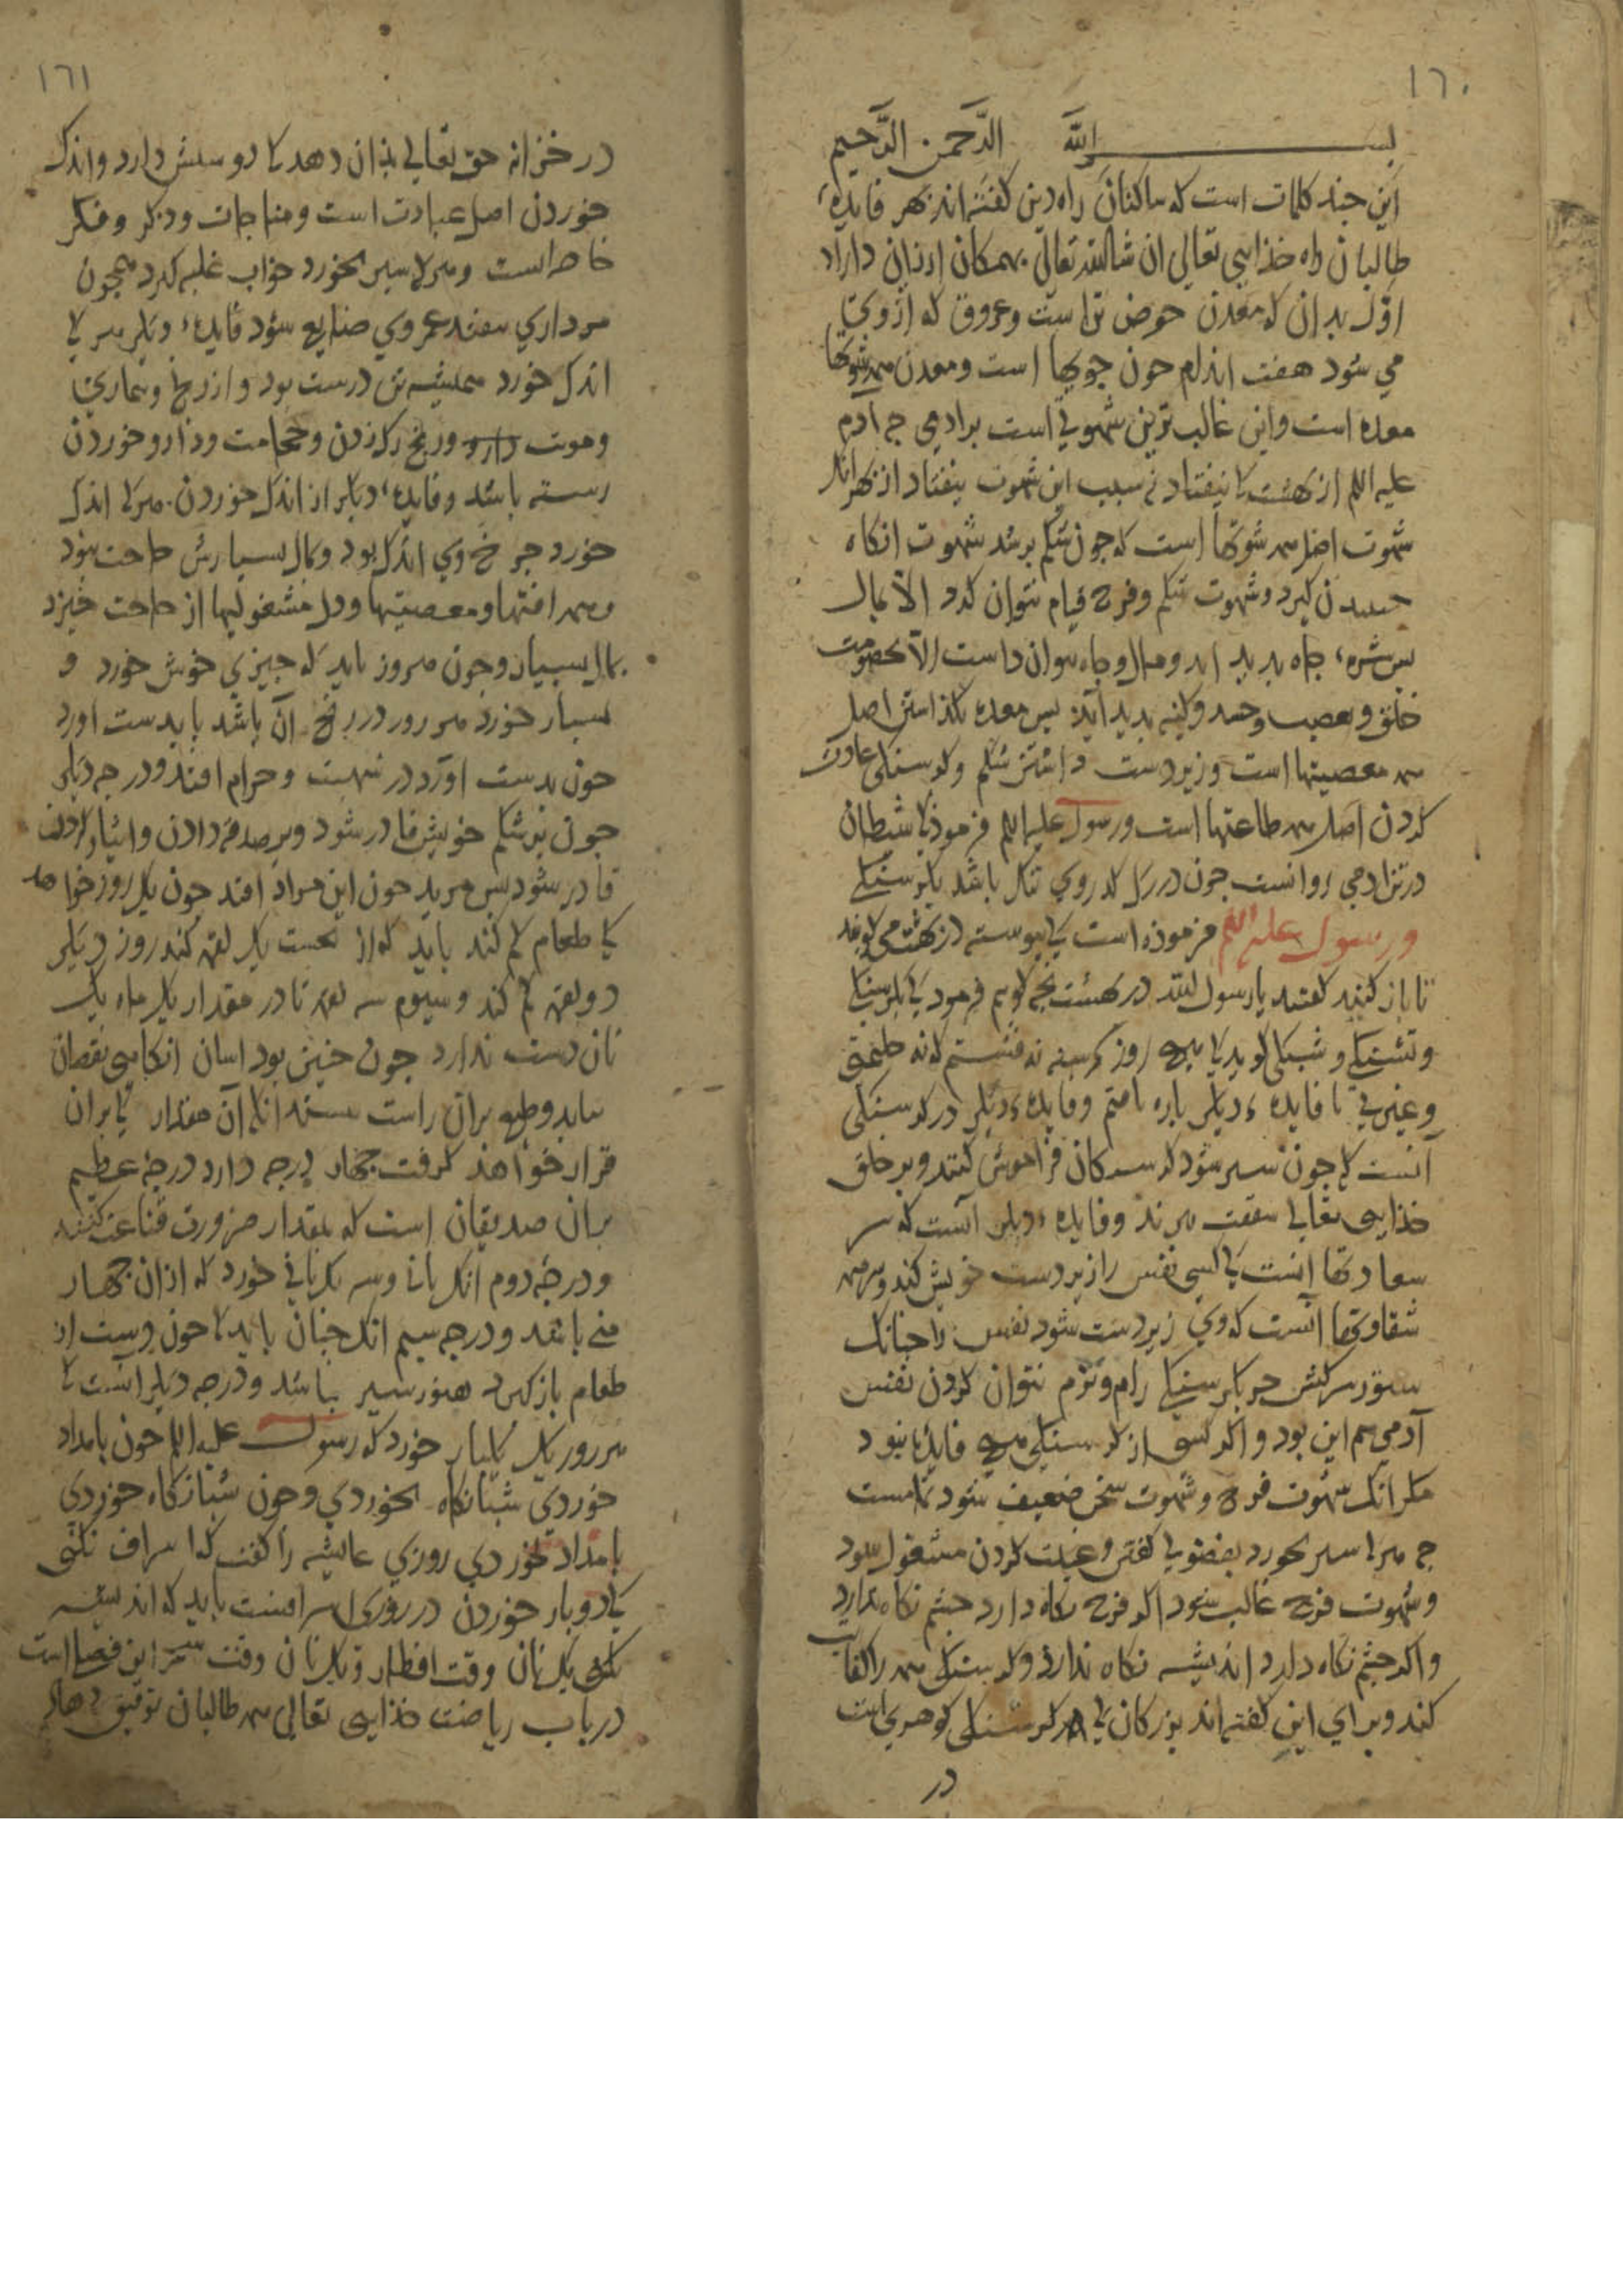 ١٦٠
بسم الله الرحمن الرحيم
این چند کلمات است که سالکان راه دین کفته اند بهر فایدهٔ
طالبان راه خذای تعالی ان شا الله تعالی همکان ازان دارا
اوّل بدان که معدن حوض تن است و عروق که از وی
می شود هفت اندام جون جویها است ومعدن همه شهوتها
معده است واین غالب ترین شهوتی است بر ادمی جه ادم
علیه السلم از بهشت کا بیفتاد به سبب این شهوت بیفتاد از بهر انک
شهوت اصل همه شهوتها است که جون شکم بر شد شهوت انکاه
کیرد و شهوت شکم وفرج قیام نتوان کرد الا بمال
بس شرهٔ جاه بدید اید ومال وجاه نتوان داشت الا بخصومت
خلق وتعصب وحسد وکینه بدید آید بس معده بکذاشتن اصل
همه معصیتها است وزیردست داشتن شکم وکرسنکی عادت
کردن اصل همه طاعتها است ورسول علیه السلم فرموذ کا شیطان
در تن ادمی روانست جون در رک کذر وی تنک باشد بکرسنکی
ورسول علیه السلم فرموذه است کی بیوسته در بهشت می کوبید
تا باز کنند کفتند یا رسول الله در بهشت بجه کوبیم فرمود کی بکرسنکی
وتشنکی و
وغیرتی تا فایدهٔ دیکر یاره یافتم وفایدهٔ دیکر در کرسنکی
آنست کی جون سیر شود کرسنکان فراموش کنند وبر خلق
خذای تعالی شفقت نبرند وفایدهٔ دیکر آنست که سر
سعادتها انست کی کسی نفس را زیردست خویش کند وسر همه
شقاوتها آنست که وی زیردست شود نفس را جنانک
ستور سرکش جز بکرسنکی رام ونرم نتوان کردن نفس
آدمی هم این بود واکر کسی از کرسنکی هیج فایدتا نبود
مکر انک شهوت فرج وشهوت سخن ضعیف شود تمامست
جه هر کا سیر بخورد بفضولی کفتن وغیبت کردن مشغول شود
وشهوت فرج غالب شود اکر فرج نکاه دارد جشم نکاه ندارد
واکر جشم نکاه دارد اندیشه نکاه ندارد وکرسنکی همه را کفایت
کند وبرای این کفته اند بزرکان کی کرسنکی کوهری است
در
١٦١
در خزانه حق تعالی بذان دهد کا دوستش دارد واندک
خوردن اصل عبادت است ومناجات وذکر وفکر
خاصه است وهر کا سیر بخورد خواب غلبه کیرد همجون
مرداری بیفتد عمر وی ضایع شود فایدهٔ دیکر هر کا
اندک خورد همیشه تن درست بود واز رنج وبیماری
وموت دارو ورنج رک زدن وحجامت ودارو خوردن
رسته باشد وفایدهٔ دیکر از اندک خوردن هر کا اندک
خورد خرج وی اندک بود وبمال بسیارش حاجت نبود
وهمه افتها ومعصیتها ودل مشغولیها از حاجت خیزد
بمال بسیار وجون هر روز باید که جیزی خوش خورد و
بسیار خورد هر روز در رنج آن باشد تا بدست اورد
جون بدست اورد در شبهت وحرام افتد ودرجه دیکر
جون بر شکم خویش قادر شود وبر صدقه دادن وایثار کردن
قادر شود بس مرید جون این مراد افتد جون یک روز خواهد
کا طعام کم کند باید که از نخست یک لقمه کند روز دیکر
دو لقمه کم کند وسیوم سه لقمه تا در مقدار یک ماه یک
نان دست ندارد جون جنین بود اسان انکاهی نقصان
نیاید وطبع بران راست بیستد انکاه آن مقدار کا بران
قرار خواهذ کرفت جهار درجه دارد درجهٔ عظیم
بران صدیقان است که بمقدار ضرورت قناعت کنند
ودرجهٔ دوم انک نانی وسه یک نانی خورد که ازان جهار
منی باشد ودرجه سیم انک جنان باید کا جون دست از
طعام باز کیرد هنوز سیر نباشد ودرجه دیکر آنست کا
هر روز یک یکبار خورد که رسول علیه السلم جون بامداد
خوردی شبانکاه نخوردی وجون شبانکاه خوردی
بامداد نخوردی روزی عایشه را کفت که اسراف نکنی
کا دو بار خوردن در روزی اسرافست باید که اندیشه
کنی یک نان وقت افطار ویک نان وقت سحر این فصل است
در باب ریاضت خذای تعالی همه طالبان توفیق دهاد